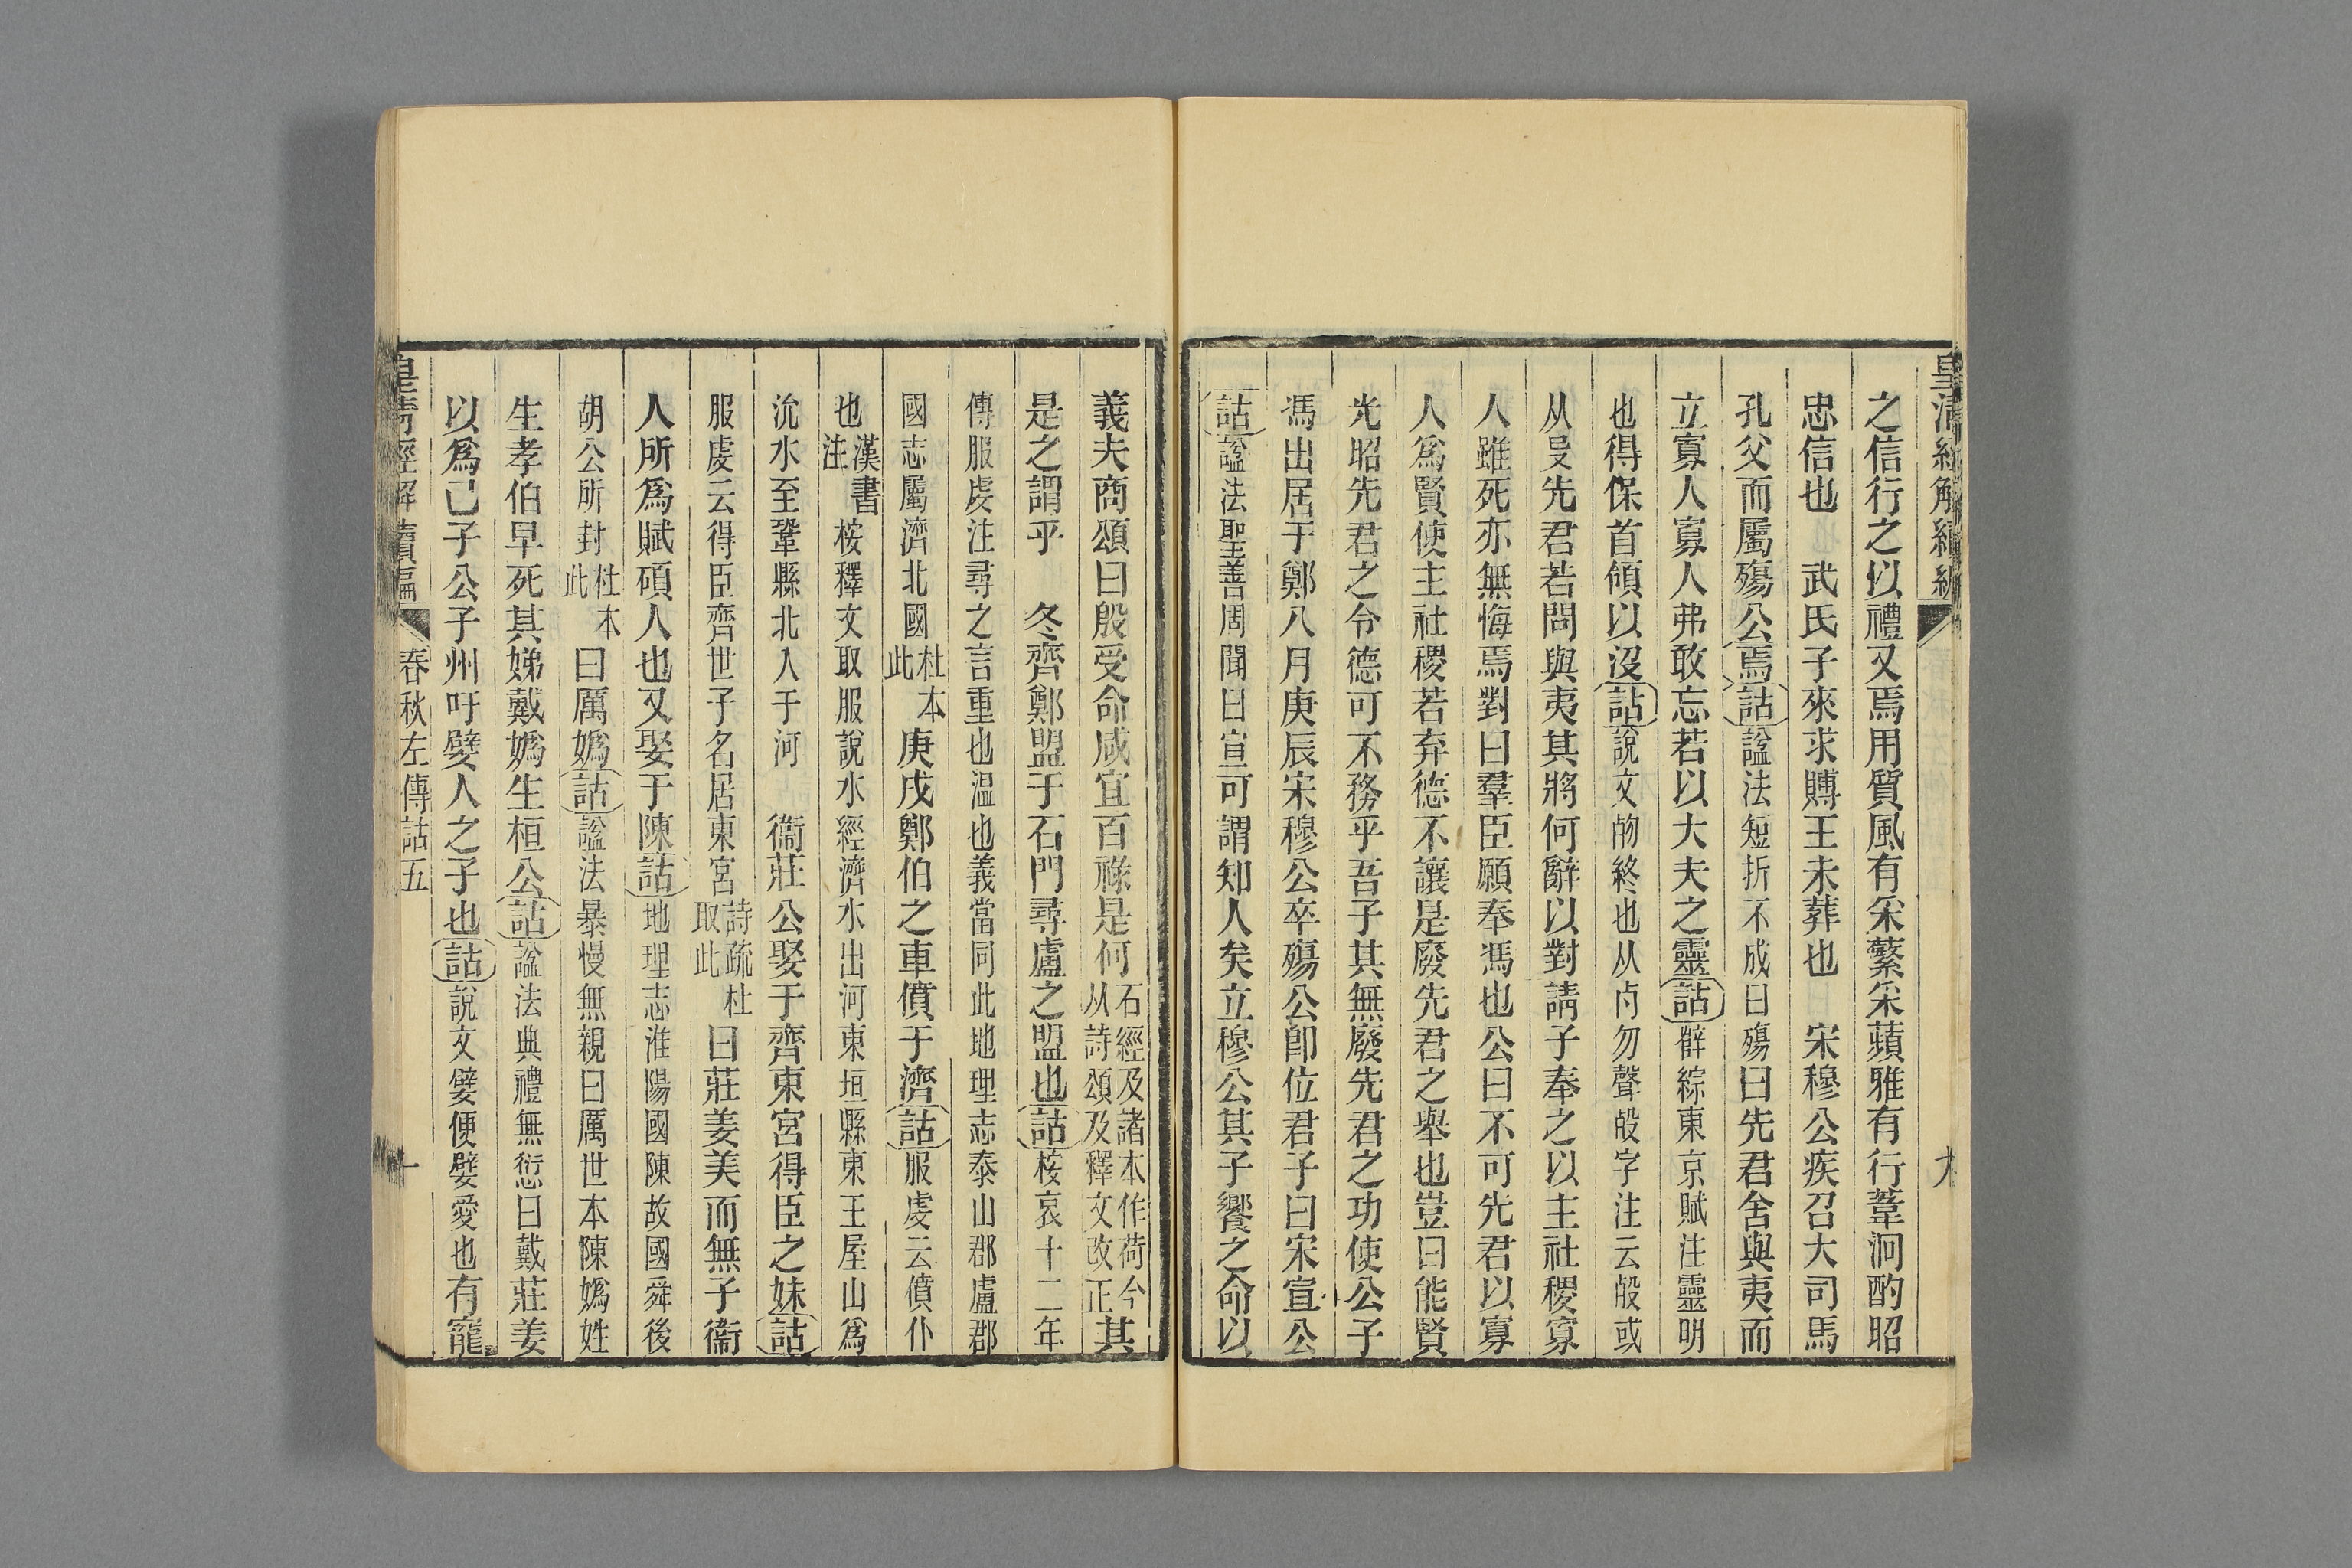 皇清經解續編
九
之信行之以禮又焉用質風有采蘩采蘋雅有行葦泂酌昭
忠信也 武氏子來求賻王未葬也 宋穆公疾召大司馬
孔父而屬殤公焉詁諡法短折不成曰殤曰先君舍與夷而
立寡人寡人弗敢忘若以大夫之靈詁薛綜東京賦注靈明
也得保首領以沒詁說文歾終也从歺勿聲㱿字注云㱿或
从𠬛先君若問與夷其將何辭以對請子奉之以主社稷寡
人雖死亦無悔焉對曰羣臣願奉馮也公曰不可先君以寡
人爲賢使主社稷若弃德不讓是廢先君之舉也豈曰能賢
光昭先君之令德可不務乎吾子其無廢先君之功使公子
馮出居于鄭八月庚辰宋穆公卒殤公卽位君子曰宋宣公
詁諡法聖善周聞曰宣可謂知人矣立穆公其子饗之命以
義夫商頌曰殷受命咸宜百祿是何石經及諸本作荷今从詩頌及釋文改正其
是之謂乎 冬齊鄭盟于石門尋盧之盟也詁桉哀十二年
傳服虔注尋之言重也温也義當同此地理志泰山郡盧郡
國志屬濟北國杜本此庚戌鄭伯之車僨于濟詁服虔云僨仆
也漢書注桉釋文取服說水經濟水出河東垣縣東王屋山爲
沇水至鞏縣北入于河 衞莊公娶于齊東宮得臣之妹詁
服虔云得臣齊世子名居東宮詩疏杜取此曰莊姜美而無子衞
人所爲賦碩人也又娶于陳詁地理志淮陽國陳故國舜後
胡公所封杜本此曰厲嬀詁諡法暴慢無親曰厲世本陳嬀姓
生孝伯早死其娣戴嬀生桓公詁諡法典禮無愆曰戴莊姜
以爲己子公子州吁嬖人之子也詁說文嬖便嬖愛也有寵
皇清經解續編 春秋左傳詁五